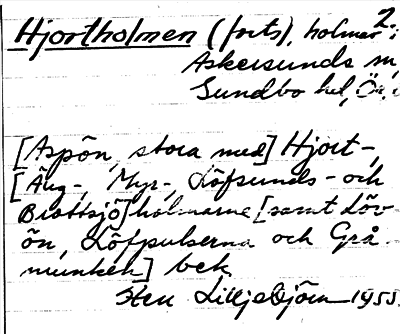 2.
Hjortholmen (forts), holmar i
Askersunds sn,
Sundbo hd, Ör.
[Aspön, stora med] Hjort-,
[Äng-, Myr-, Löfsunds- och
Brottsjö]holmarne [samt Löv
ön, Löfpulserna och Grå
munken] bek.
Sten Lilljebjörn 1955.